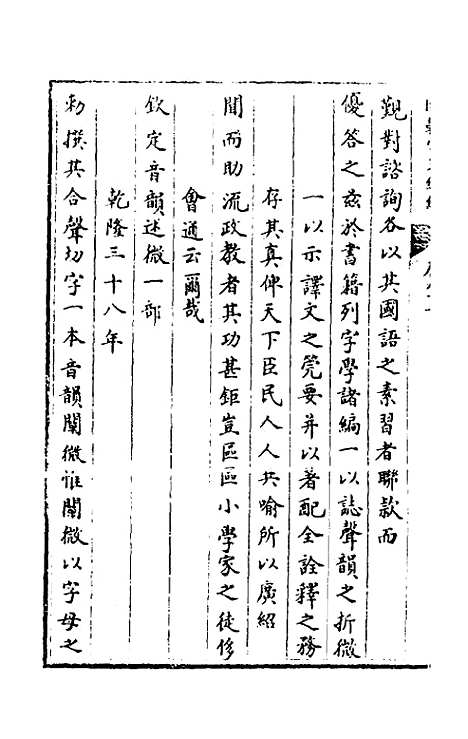 覲對諮詢各以其國語之素習者聯款而
優答之玆於書籍列字學諸編一以誌聲韻之折微
一以示譯文之筦要并以著配全詮釋之務
存其真俾天下臣民人人共喻所以廣紹
聞而助流政教者其功甚鉅豈區區小學家之徒侈
會通云爾哉
欽定音韻述微一部
乾隆三十八年
勅撰其合聲切字一本音韻闡微惟闡微以字母之